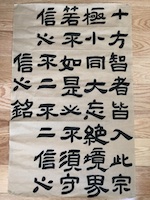 十方智者皆入此宗
極小同大忘絕境界
若不如是必不須守
信心不二不二信心
信心銘